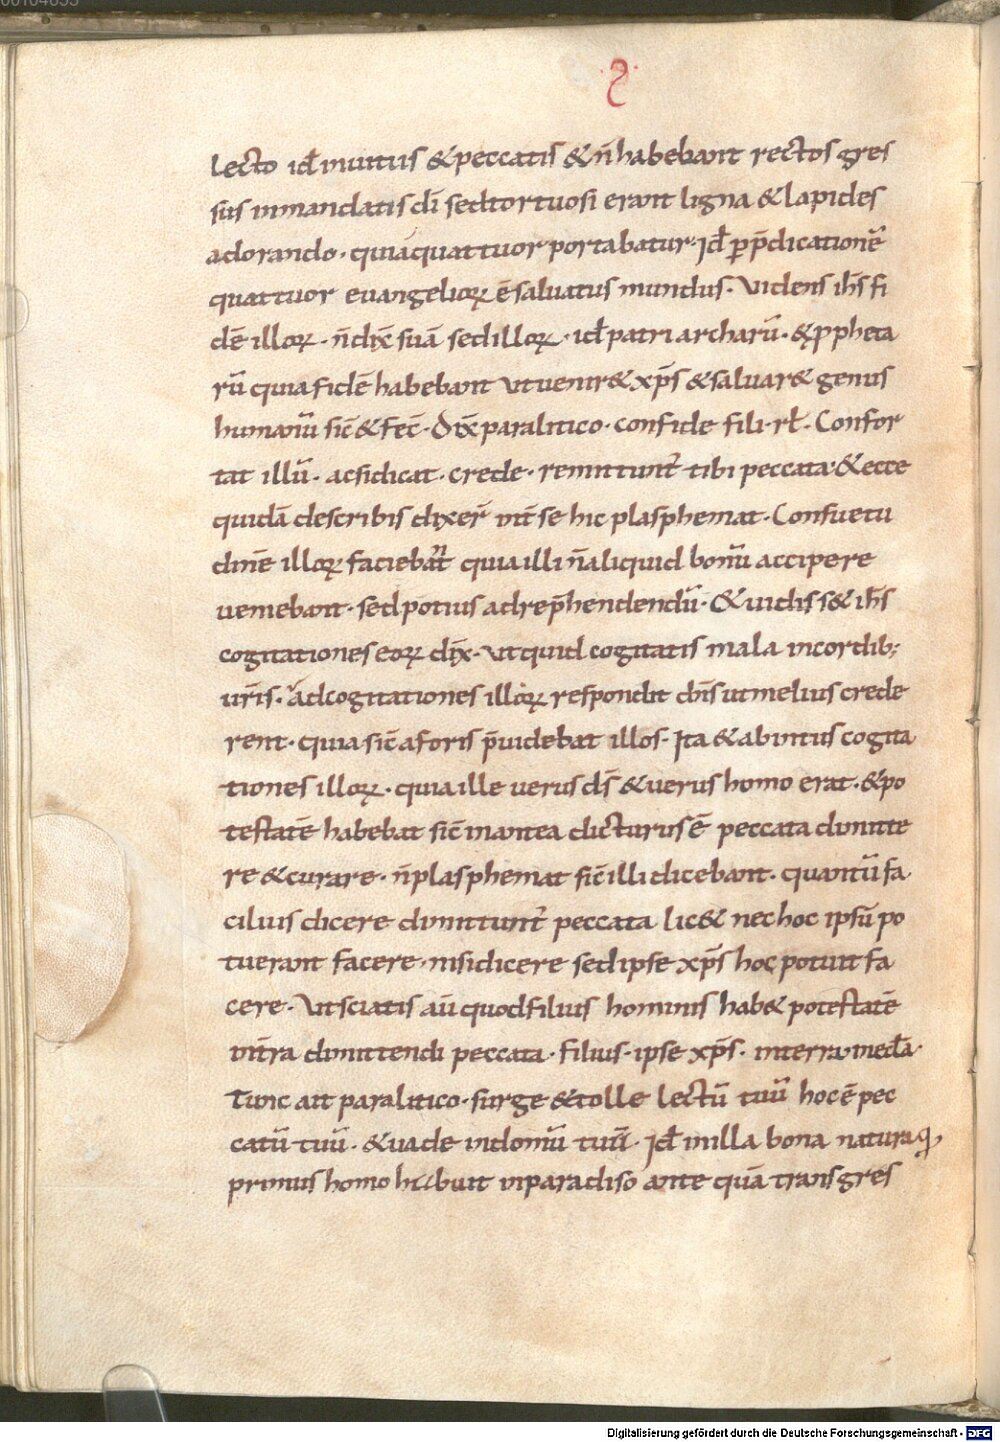 00104635
lecto id̄ inuitiis & peccatis & n̄ habebant rectos gres
sus inmandatis dī sed tortuosi erant ligna & lapides
adorando · quia quattuor portabatur · Id̄ ꝑ p̄dicationē
quattuor euangelioꝝ ē saluatus mundus · Videns ih̄s fi
dē illoꝝ · n̄ dix̄ suā sed illoꝝ · id̄ patriarcharū · & ꝓpheta
rū quia fidē habebant ut uenir& xp̄s & saluar& genus
humanū sic̄ & fec̄ · Dix̄ paralitico · confide fili · rl̄ · Confor
tat illū · acsi dicat · crede · remittunt᷑ tibi peccata · & ecce
quidā de scribis dixer̄ int̄ se hic plasphemat · Consuetu
dinē illoꝝ faciebāt quia illi n̄ aliquid bonū accipere
ueniebant · sed potius ad rep̄hendendū · & uidiss& ih̄s
cogitationes eoꝝ dix̄ · ut quid cogitatis mala incordib;
ur̄is · Ad cogitationes illoꝝ respondit dn̄s ut melius crede
rent · quia sic̄ aforis p̄uidebat illos · Ita & abintus cogita
tiones illoꝝ · quia ille uerus ds̄ & uerus homo erat · & po
testatē habebat sic̄ inantea dicturus ē peccata dimitte
re & curare · n̄ plasphemat sic̄ illi dicebant · quantū fa
cilius dicere dimittunt᷑ peccata lic& nec hoc ipsū po
tuerant facere · nisi dicere sed ipse xp̄s hoc potuit fa
cere · Ut sciatis aū quod filius hominis hab& potestatē
int̄ra dimittendi peccata · filius · ipse xp̄s · interra · med̄a ·
Tunc ait paralitico · surge & tolle lectū tuū hoc ē pec
catū tuū · & uade indomū tuū · Id̄ inilla bona natura q̨
primus homo habuit inparadiso ante quā transgres
Digitalisierung gefördert durch die Deutsche Forschungsgemeinschaft - DFG